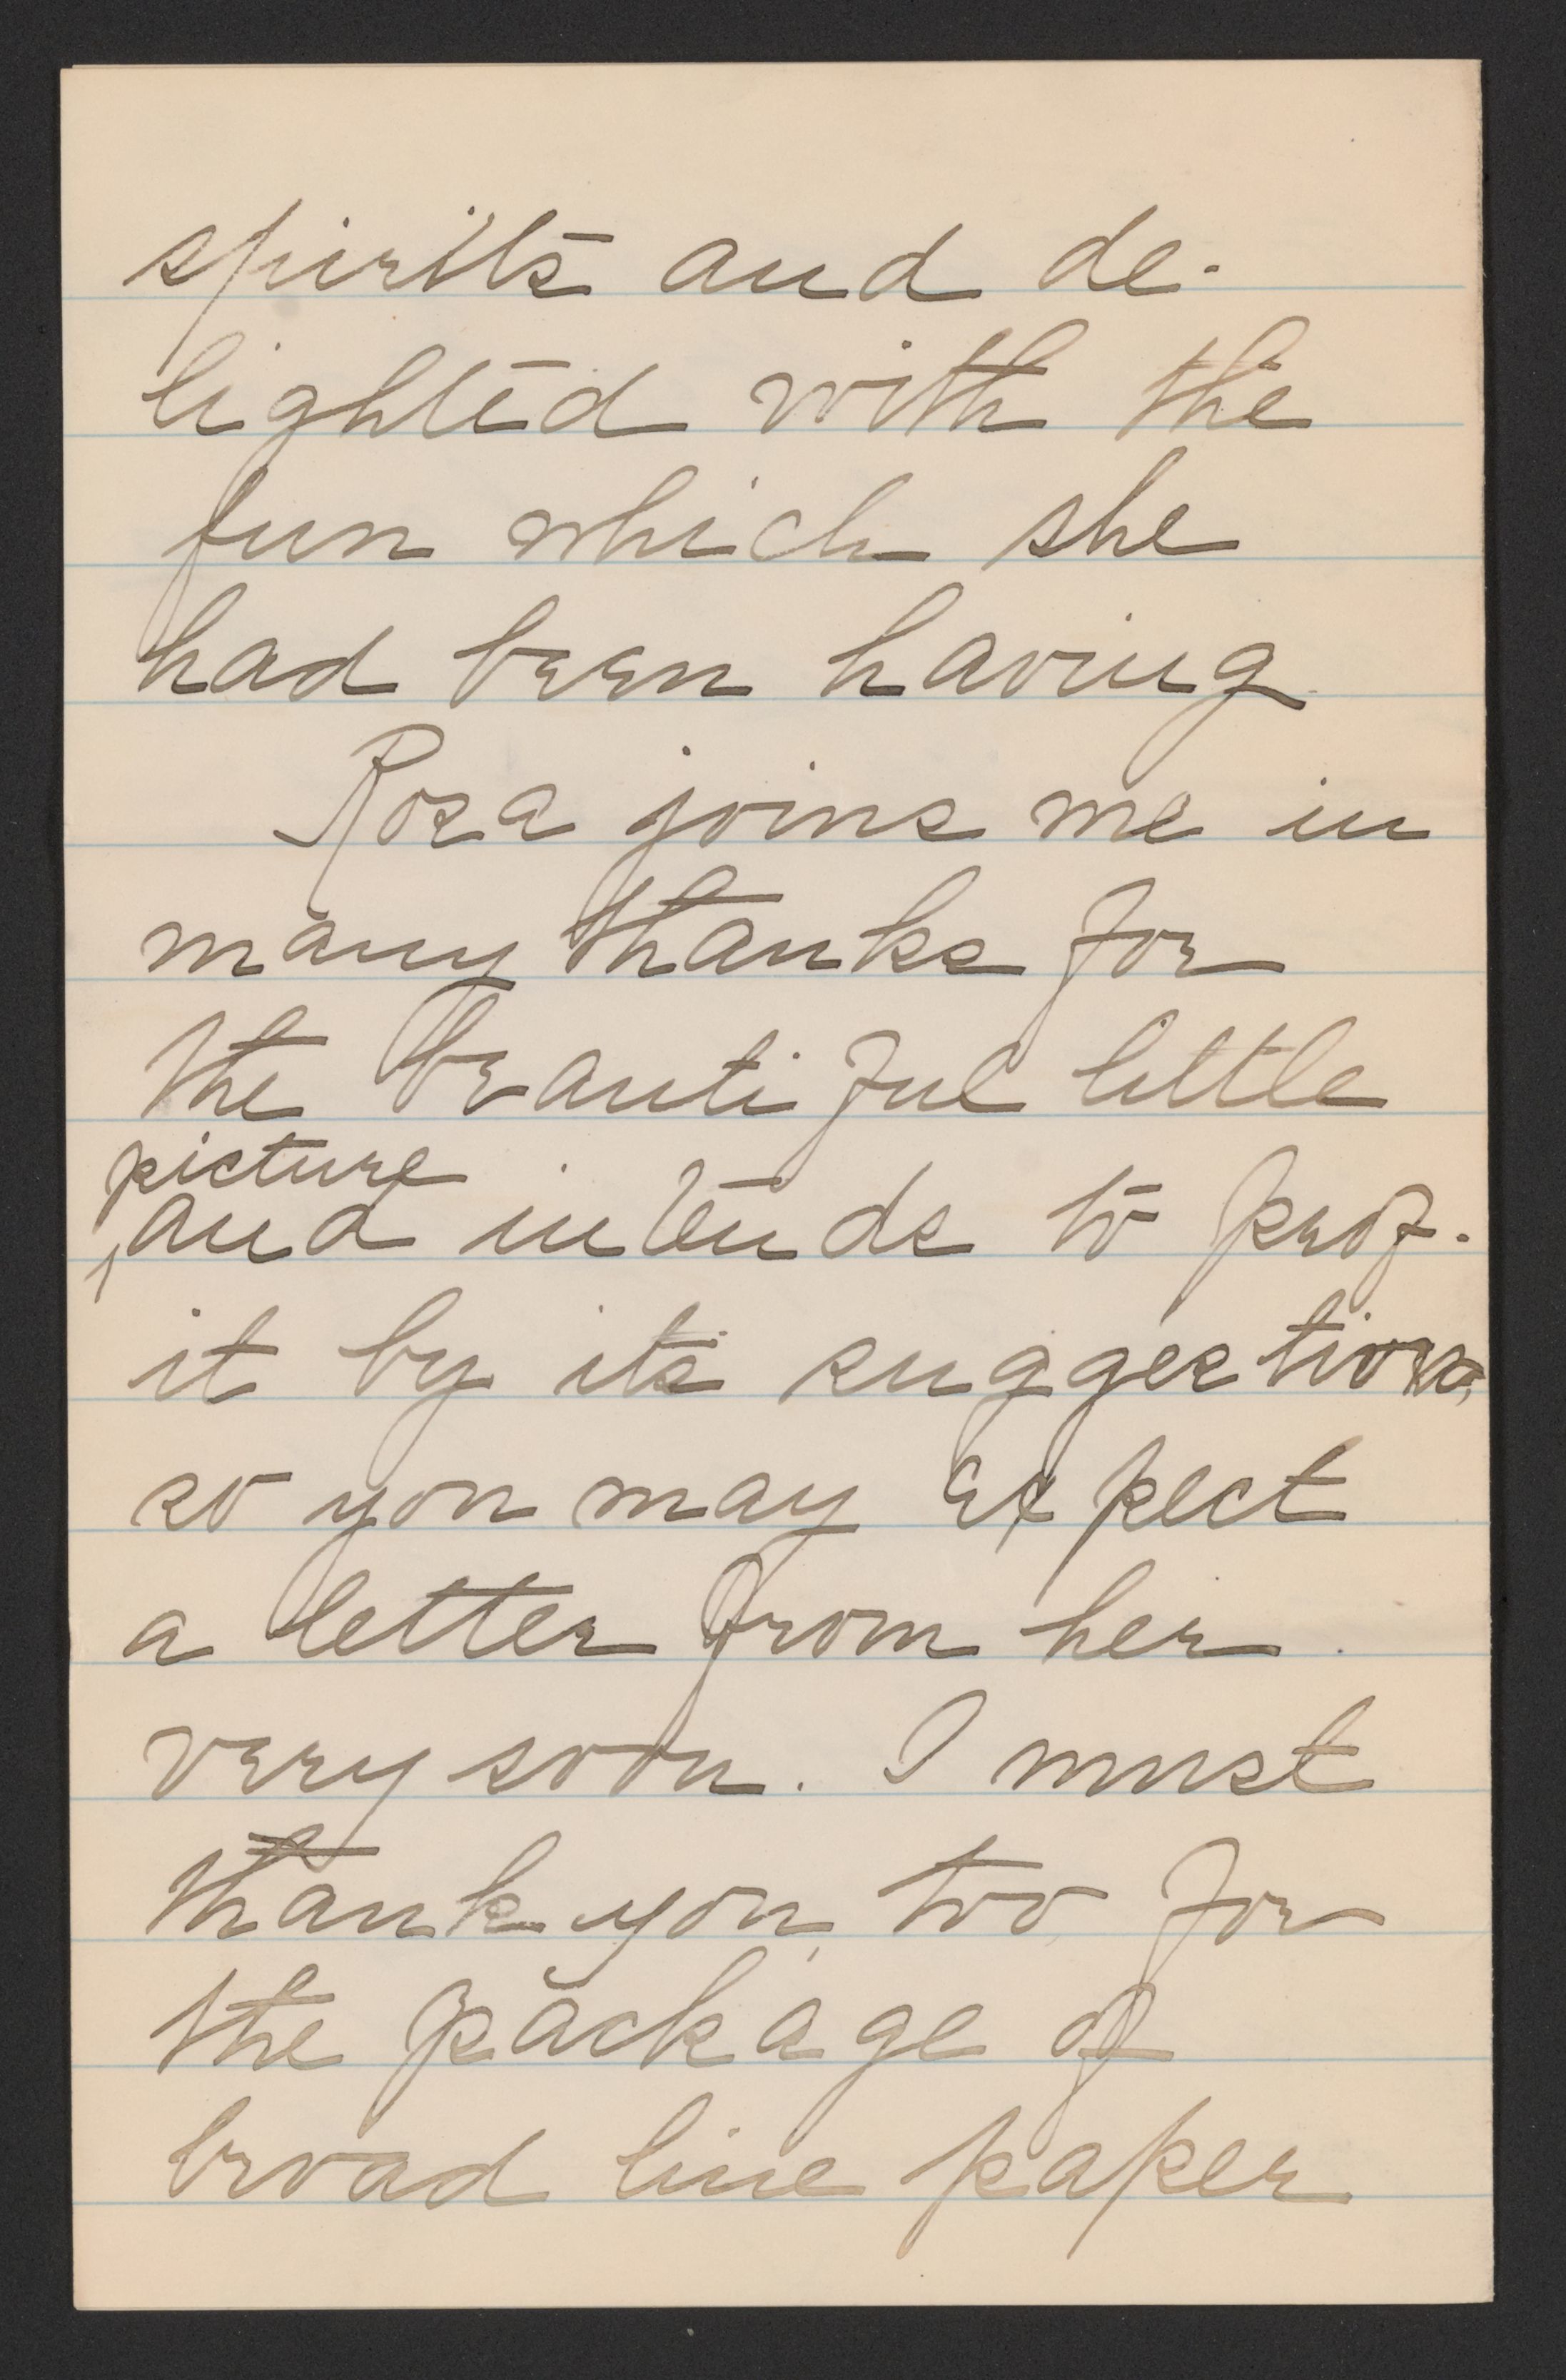 spirits and de-
lighted with the
fun which she
had been having
Rosa joins me in
many thanks for
the beautiful little
picture
and intends to prof-
it by its suggestion,
so you may expect
a letter from her
very soon. I must
thank you, too for
the package of
broad line paper